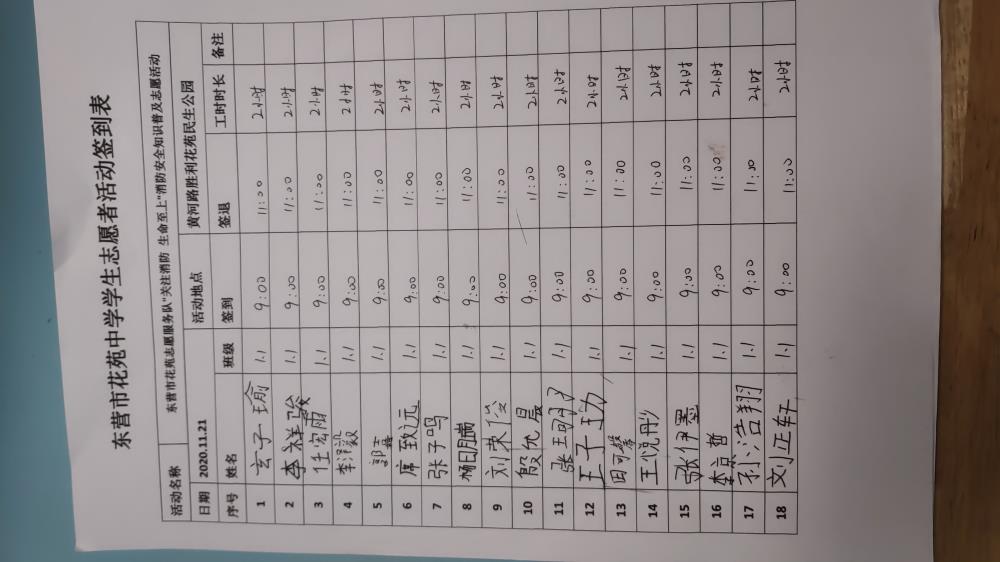 东营市花苑中学学生志愿者活动签到表
活动名称 东营市花苑志愿服务队"关注消防 生命至上"消防安全知识普及志愿活动
日期 2020.11.21 活动地点 黄河路胜利花苑民生公园
序号 姓名 班级 签到 签退 工时时长 备注
1 玄子瑜 1.1 9:00 11:00 2小时
2 李祥骏 1.1 9:00 11:00 2小时
3 任宏雨 1.1 9:00 11:00 2小时
4 李泽毅 1.1 9:00 11:00 2小时
5 郭嘉 1.1 9:00 11:00 2小时
6 席致远 1.1 9:00 11:00 2小时
7 张子鸣 1.1 9:00 11:00 2小时
8 1.1 9:00 11:00 2小时
9 刘荣俊 1.1 9:00 11:00 2小时
10 殷允晨 1.1 9:00 11:00 2小时
11 张玥明 1.1 9:00 11:00 2小时
12 王子功 1.1 9:00 11:00 2小时
13 田可馨 1.1 9:00 11:00 2小时
14 王悦彤 1.1 9:00 11:00 2小时
15 张伊墨 1.1 9:00 11:00 2小时
16 李京哲 1.1 9:00 11:00 2小时
17 孙浩翔 1.1 9:00 11:00 2小时
18 刘正轩 1.1 9:00 11:00 2小时